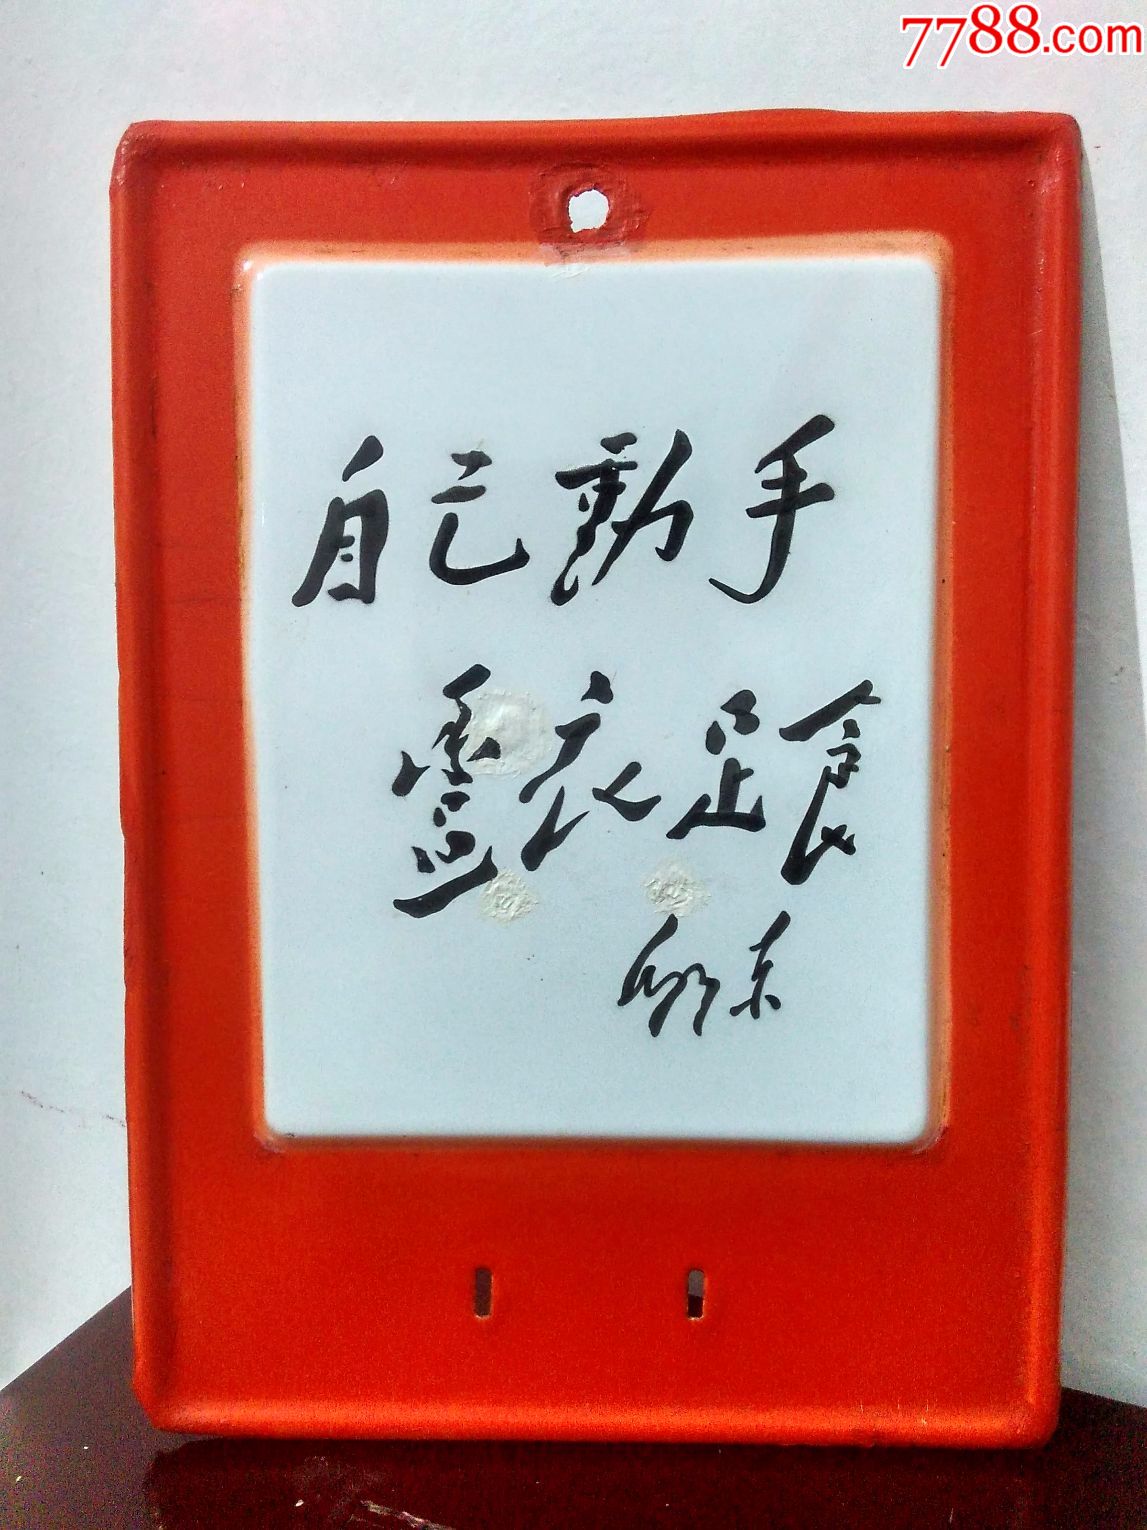 7788.com
自己動手
豐衣足食
毛泽东